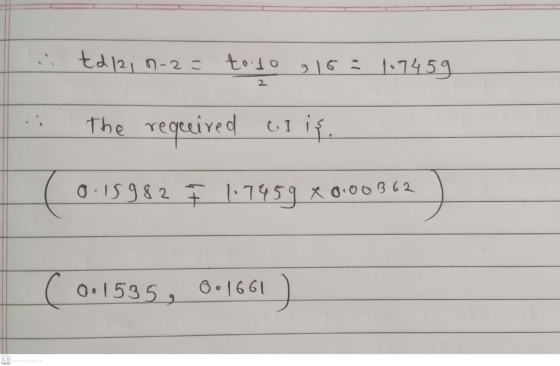 ∴ tα/2, n-2 = t0.10/2, 16 = 1.7459
∴ The required C.I is.
(0.15982 ∓ 1.7459 × 0.00362)
(0.1535, 0.1661)